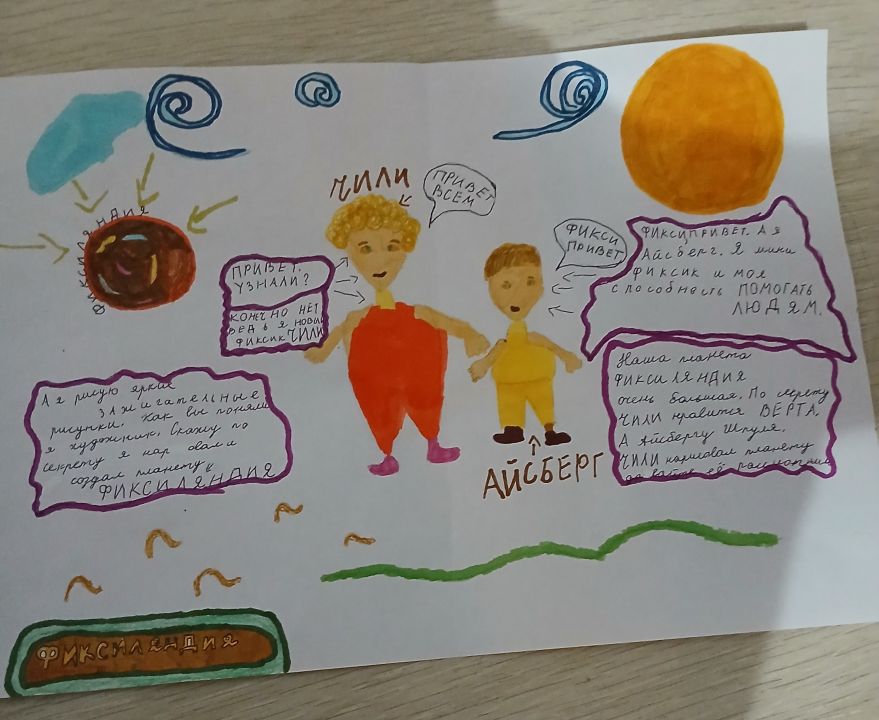 ЧИЛИ
ПРИВЕТ
ВСЕМ
ФИКСИЛЯНДИЯ
ПРИВЕТ.
УЗНАЛИ?
КОНЕЧНО НЕТ
ВЕДЬ Я НОВЫЙ
ФИКСИК ЧИЛИ
ФИКСИ
ПРИВЕТ
ФИКСИПРИВЕТ. А я
Айсберг. Я мини
фиксик и моя
способность ПОМОГАТЬ
ЛЮДЯМ.
А я рисую яркие
зажигательные
рисунки. Как вы поняли
я художник. Скажу по
секрету я нарисовал и
создал планету
ФИКСИЛЯНДИЯ
Наша планета
ФИКСИЛЯНДИЯ
очень большая. По секрету
ЧИЛИ нравится ВЕРТА.
А Айсбергу Шпуля.
ЧИЛИ нарисовал планету
АЙСБЕРГ
ФИКСИЛЯНДИЯ